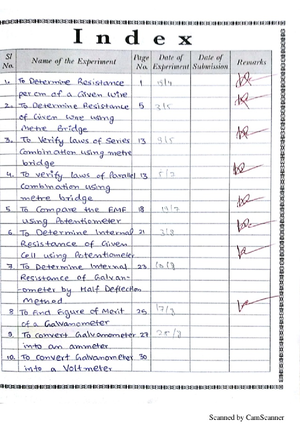 Index
Sl No. Name of the Experiment Page No. Date of Experiment Date of Submission Remarks
1. To Determine Resistance 1
per cm of a Given Wire
2. To Determine Resistance 5
of Given Wire using
Metre Bridge
3. To Verify laws of Series 13
Combination using metre
bridge
4. To verify laws of Parallel 13
Combination using
metre bridge
5. To Compare the EMF
using Potentiometer
6. To Determine Internal 21
Resistance of Given
Cell using Potentiometer
7. To Determine Internal 23
Resistance of Galvan-
ometer by Half Deflection
Method
8 To Find Figure of Merit 25
of a Galvanometer
9. To convert Galvanometer 27
into an ammeter
10. To convert Galvanometer 30
into a Voltmeter
Scanned by CamScanner